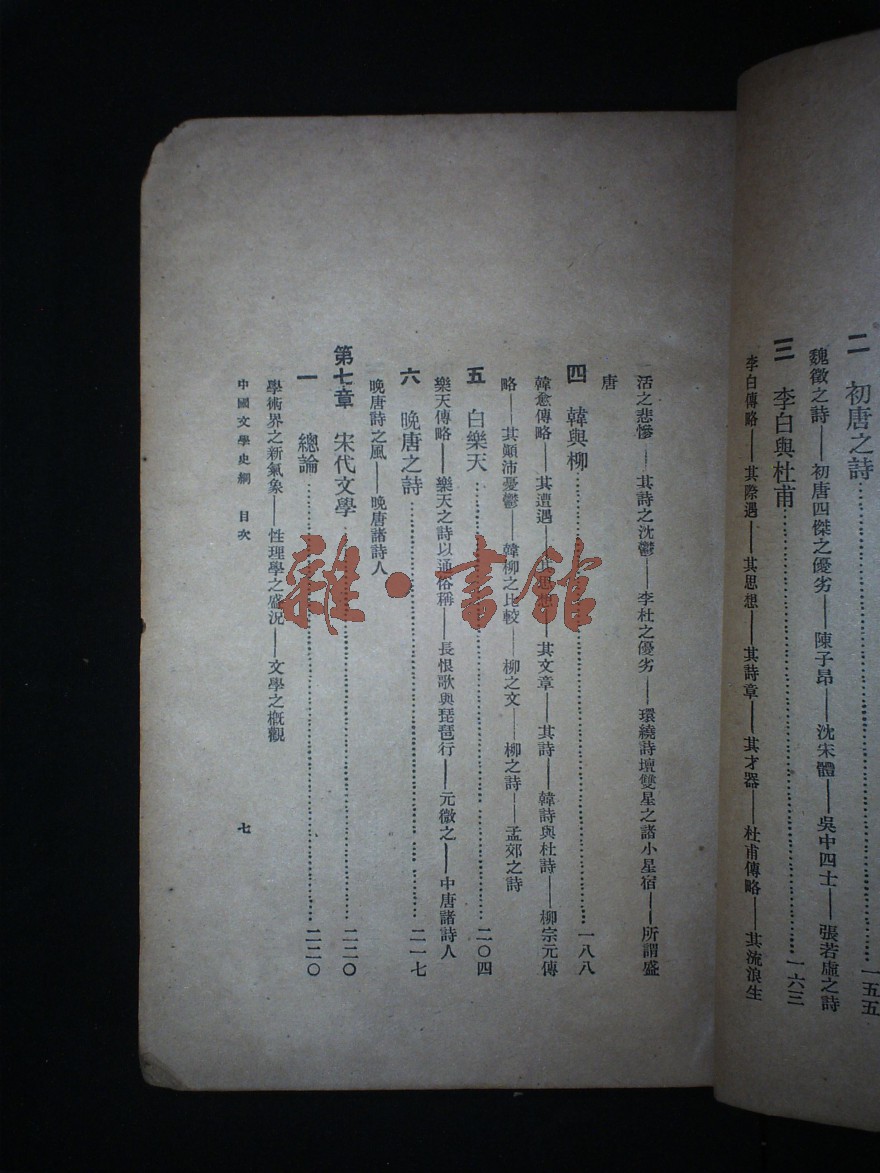 二　初唐之詩……一五五
魏徵之詩——初唐四傑之優劣——陳子昂——沈宋體——吳中四士——張若虛之詩
三　李白與杜甫……一六三
李白傳略——其際遇——其思想——其詩章——其才器——杜甫傳略——其流浪生
活之悲慘——其詩之沈鬱——李杜之優劣——環繞詩壇雙星之諸小星宿——所謂盛
唐
四　韓與柳……一八八
韓愈傳略——其遭遇——其思想——其文章——其詩——韓詩與杜詩——柳宗元傳
略——其顚沛憂鬱——韓柳之比較——柳之文——柳之詩——孟郊之詩
五　白樂天……二〇四
樂天傳略——樂天之詩以通俗稱——長恨歌與琵琶行——元微之——中唐諸詩人
六　晚唐之詩……二一七
晚唐詩之風——晚唐諸詩人
第七章　宋代文學……二二〇
一　總論……二二〇
學術界之新氣象——性理學之盛況——文學之概觀
中國文學史綱　目次
七
雜·書館